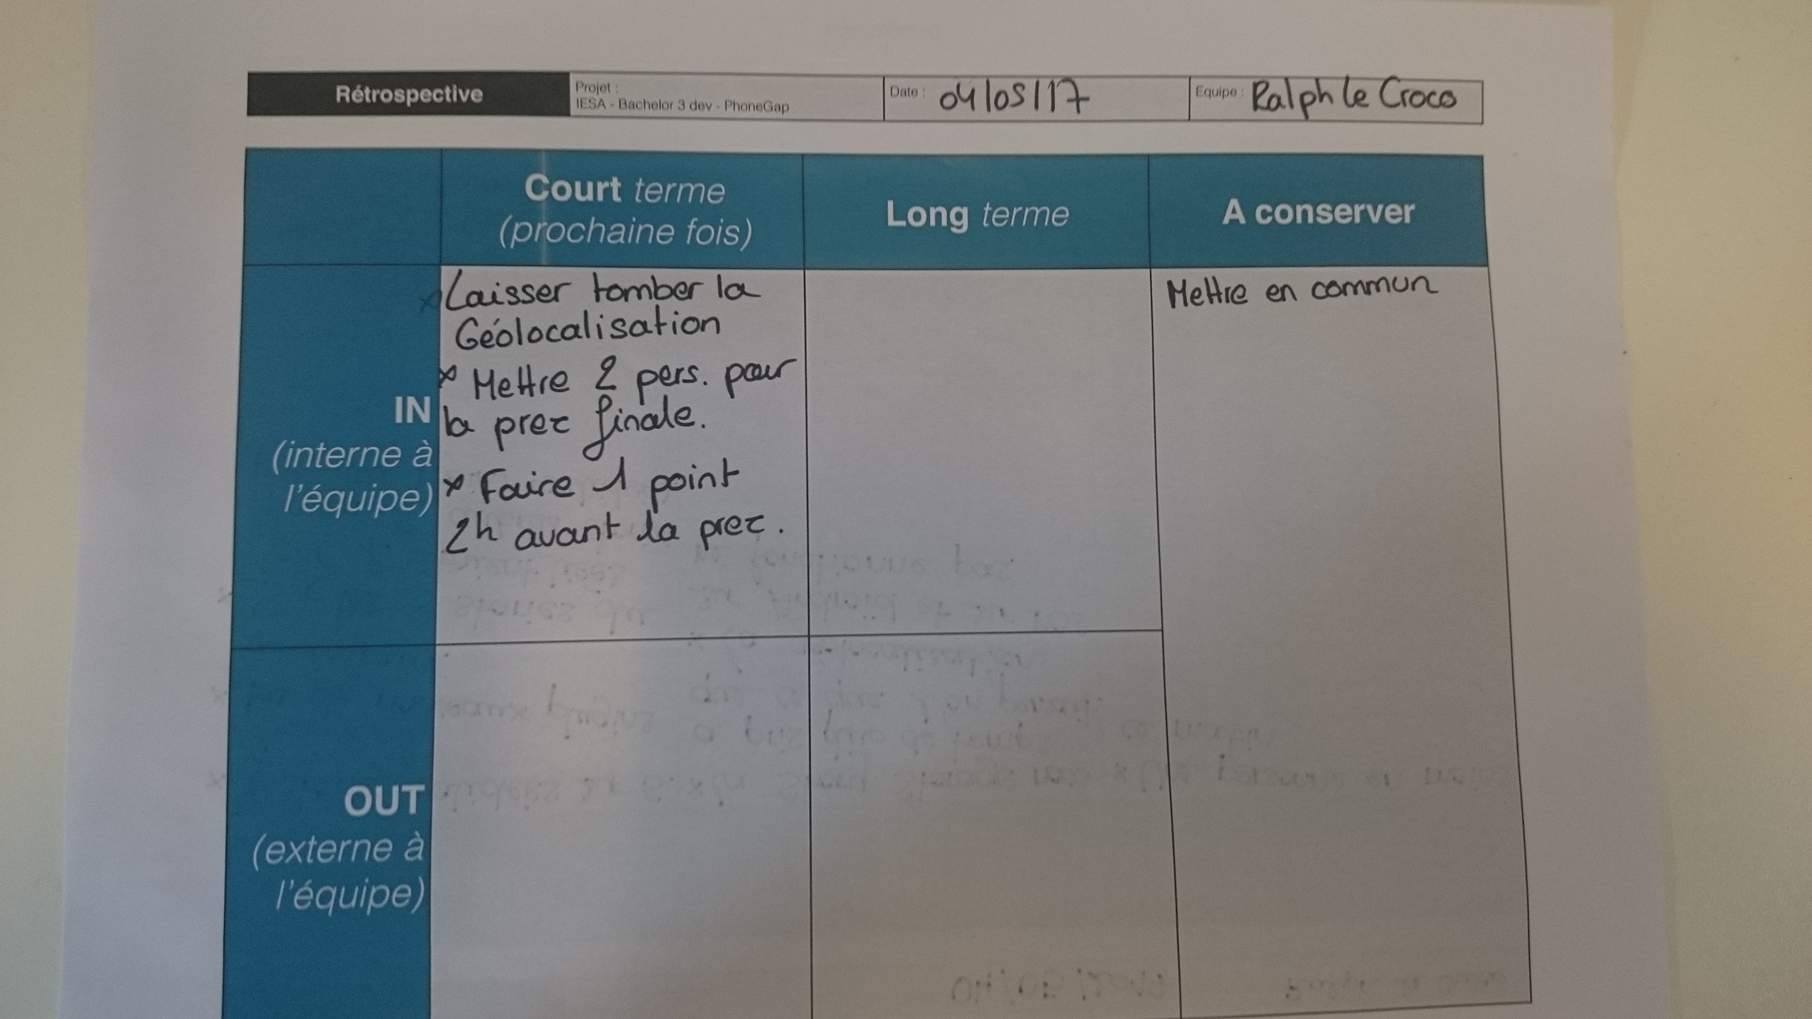 Rétrospective
Projet :
IESA - Bachelor 3 dev - PhoneGap
Date : 04/05/17
Equipe : Ralph le Croco
Court terme
(prochaine fois)
Long terme
A conserver
IN
(interne à
l'équipe)
x Laisser tomber la
Géolocalisation
x Mettre 2 pers. pour
la prez finale.
x Faire 1 point
2h avant la prez.
Mettre en commun
OUT
(externe à
l'équipe)